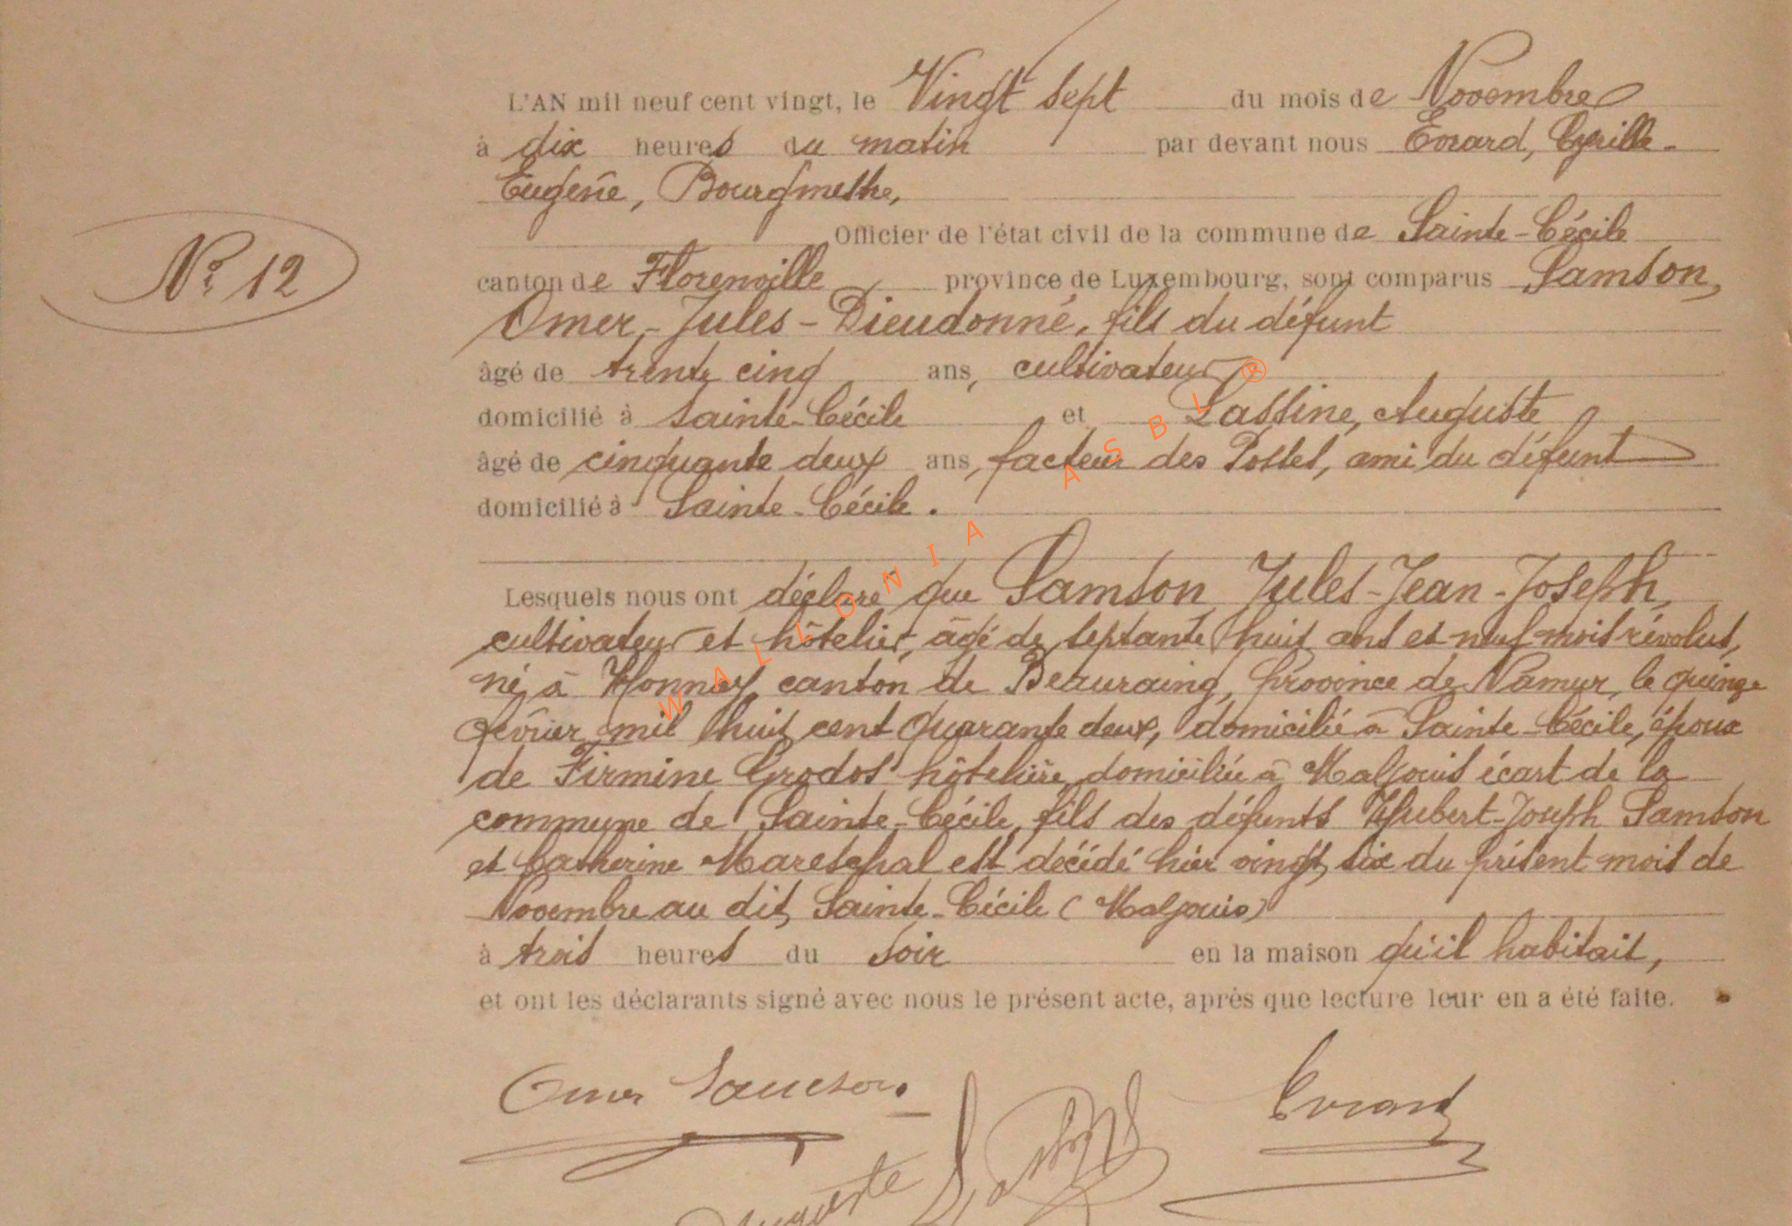 L'AN mil neuf cent vingt, le Vingt sept du mois de Novembre
à dix heures du matin par devant nous Evrard, Cyrille-
Eugène, Bourgmestre,
Officier de l'état civil de la commune de Sainte-Cécile
N° 12
canton de Florenville province de Luxembourg, sont comparus Samson,
Omer-Jules-Dieudonné, fils du défunt
âgé de trente cinq ans, cultivateur
domicilié à Sainte-Cécile et Lassine, Auguste
âgé de cinquante deux ans, facteur des Postes, ami du défunt
domicilié à Sainte-Cécile.
Lesquels nous ont déclaré que Samson Jules-Jean-Joseph,
cultivateur et hôtelier, âgé de septante huit ans et neuf mois révolus,
né à Honnay, canton de Beauraing, province de Namur, le quinze
février mil huit cent quarante deux, domicilié à Sainte-Cécile, époux
de Firmine Grodos hôtelière, domiciliée à Maljouis écart de la
commune de Sainte-Cécile, fils des défunts Hubert-Joseph Samson
et Catherine Mareschal est décédé hier vingt six du présent mois de
Novembre au dit Sainte-Cécile (Maljouis)
à trois heures du soir en la maison qu'il habitait,
et ont les déclarants signé avec nous le présent acte, après que lecture leur en a été faite.
Omer Samson. Evrard
Auguste Lassine
WALLONIA ASBL ®